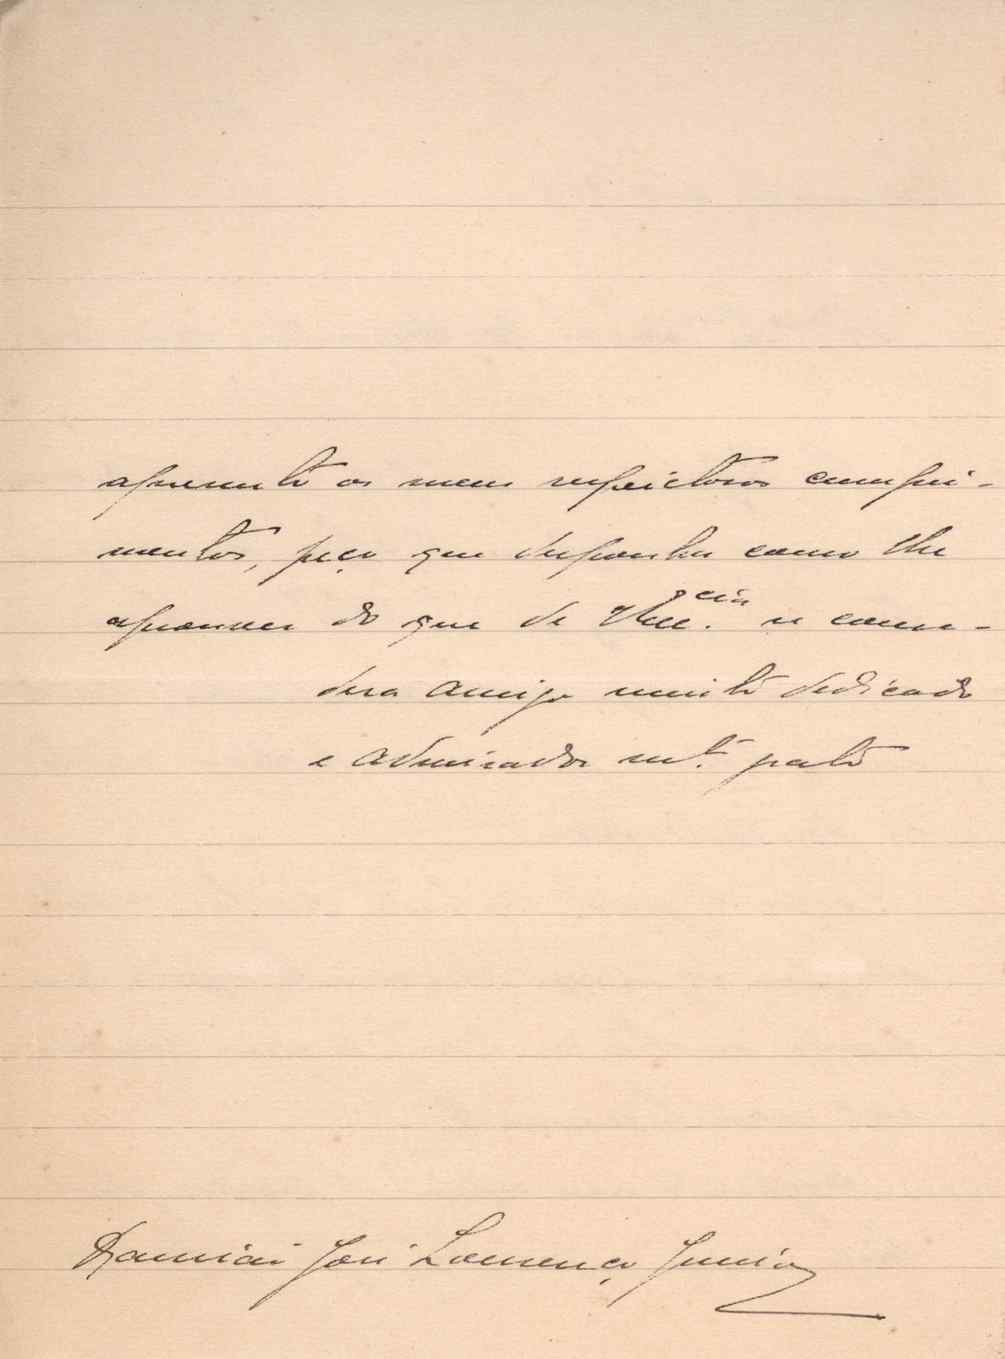 apresento os meus respeitosos cumpri-
mentos, peço que disponha como lhe
aprouver do que de V. Exc.cia se consi-
dera amigo muito dedicado
e admirador mt.º grato
Damião José Lourenço Junior